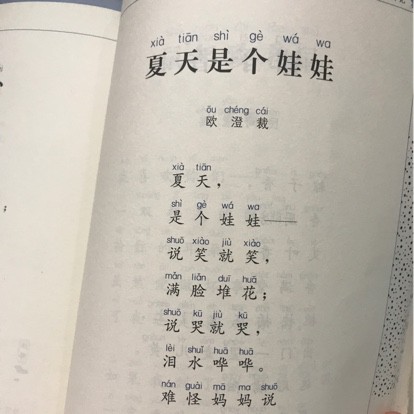 xià tiān shì gè wá wa
夏天是个娃娃
ōu chéng cái
欧澄裁
xià tiān
夏天，
shì gè wá wa
是个娃娃——
shuō xiào jiù xiào
说笑就笑，
mǎn liǎn duī huā
满脸堆花；
shuō kū jiù kū
说哭就哭，
lèi shuǐ huā huā
泪水哗哗。
nán guài mā ma shuō
难怪妈妈说